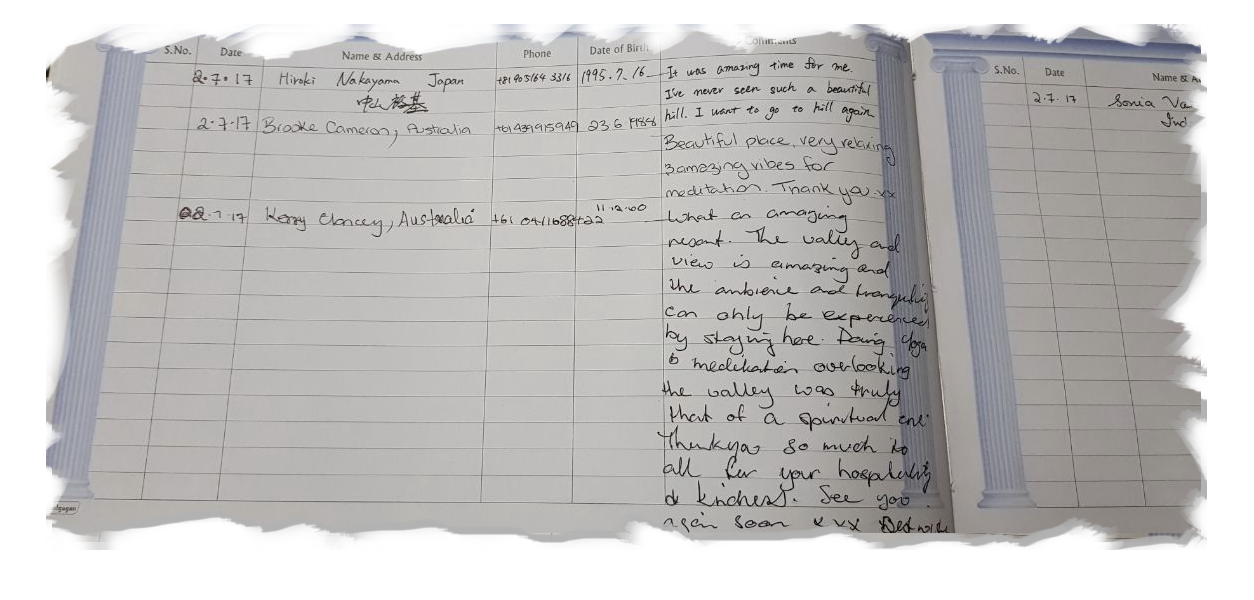 S.No. Date Name & Address Phone Date of Birth Comments
2.7.17 Hiroki Nakayama Japan 1995.7.16 It was amazing time for me.
中山裕基 I've never seen such a beautiful
hill. I want to go to hill again
2.7.17 Brooke Cameron, Australia +61439915949 23.6.1986
Beautiful place, very relaxing
& amazing vibes for
meditation. Thank you xx
2.7.17 Kerry Clancey, Australia 11.12.60
What an amazing
resort. The valley and
view is amazing and
the ambience and tranquility
can only be experienced
by staying here. Doing yoga
& meditation overlooking
the valley was truly
that of a spiritual one.
Thankyou so much to
all for your hospitality
& kindness. See you
again soon xxx
S.No. Date Name &
2.7.17 Sonia